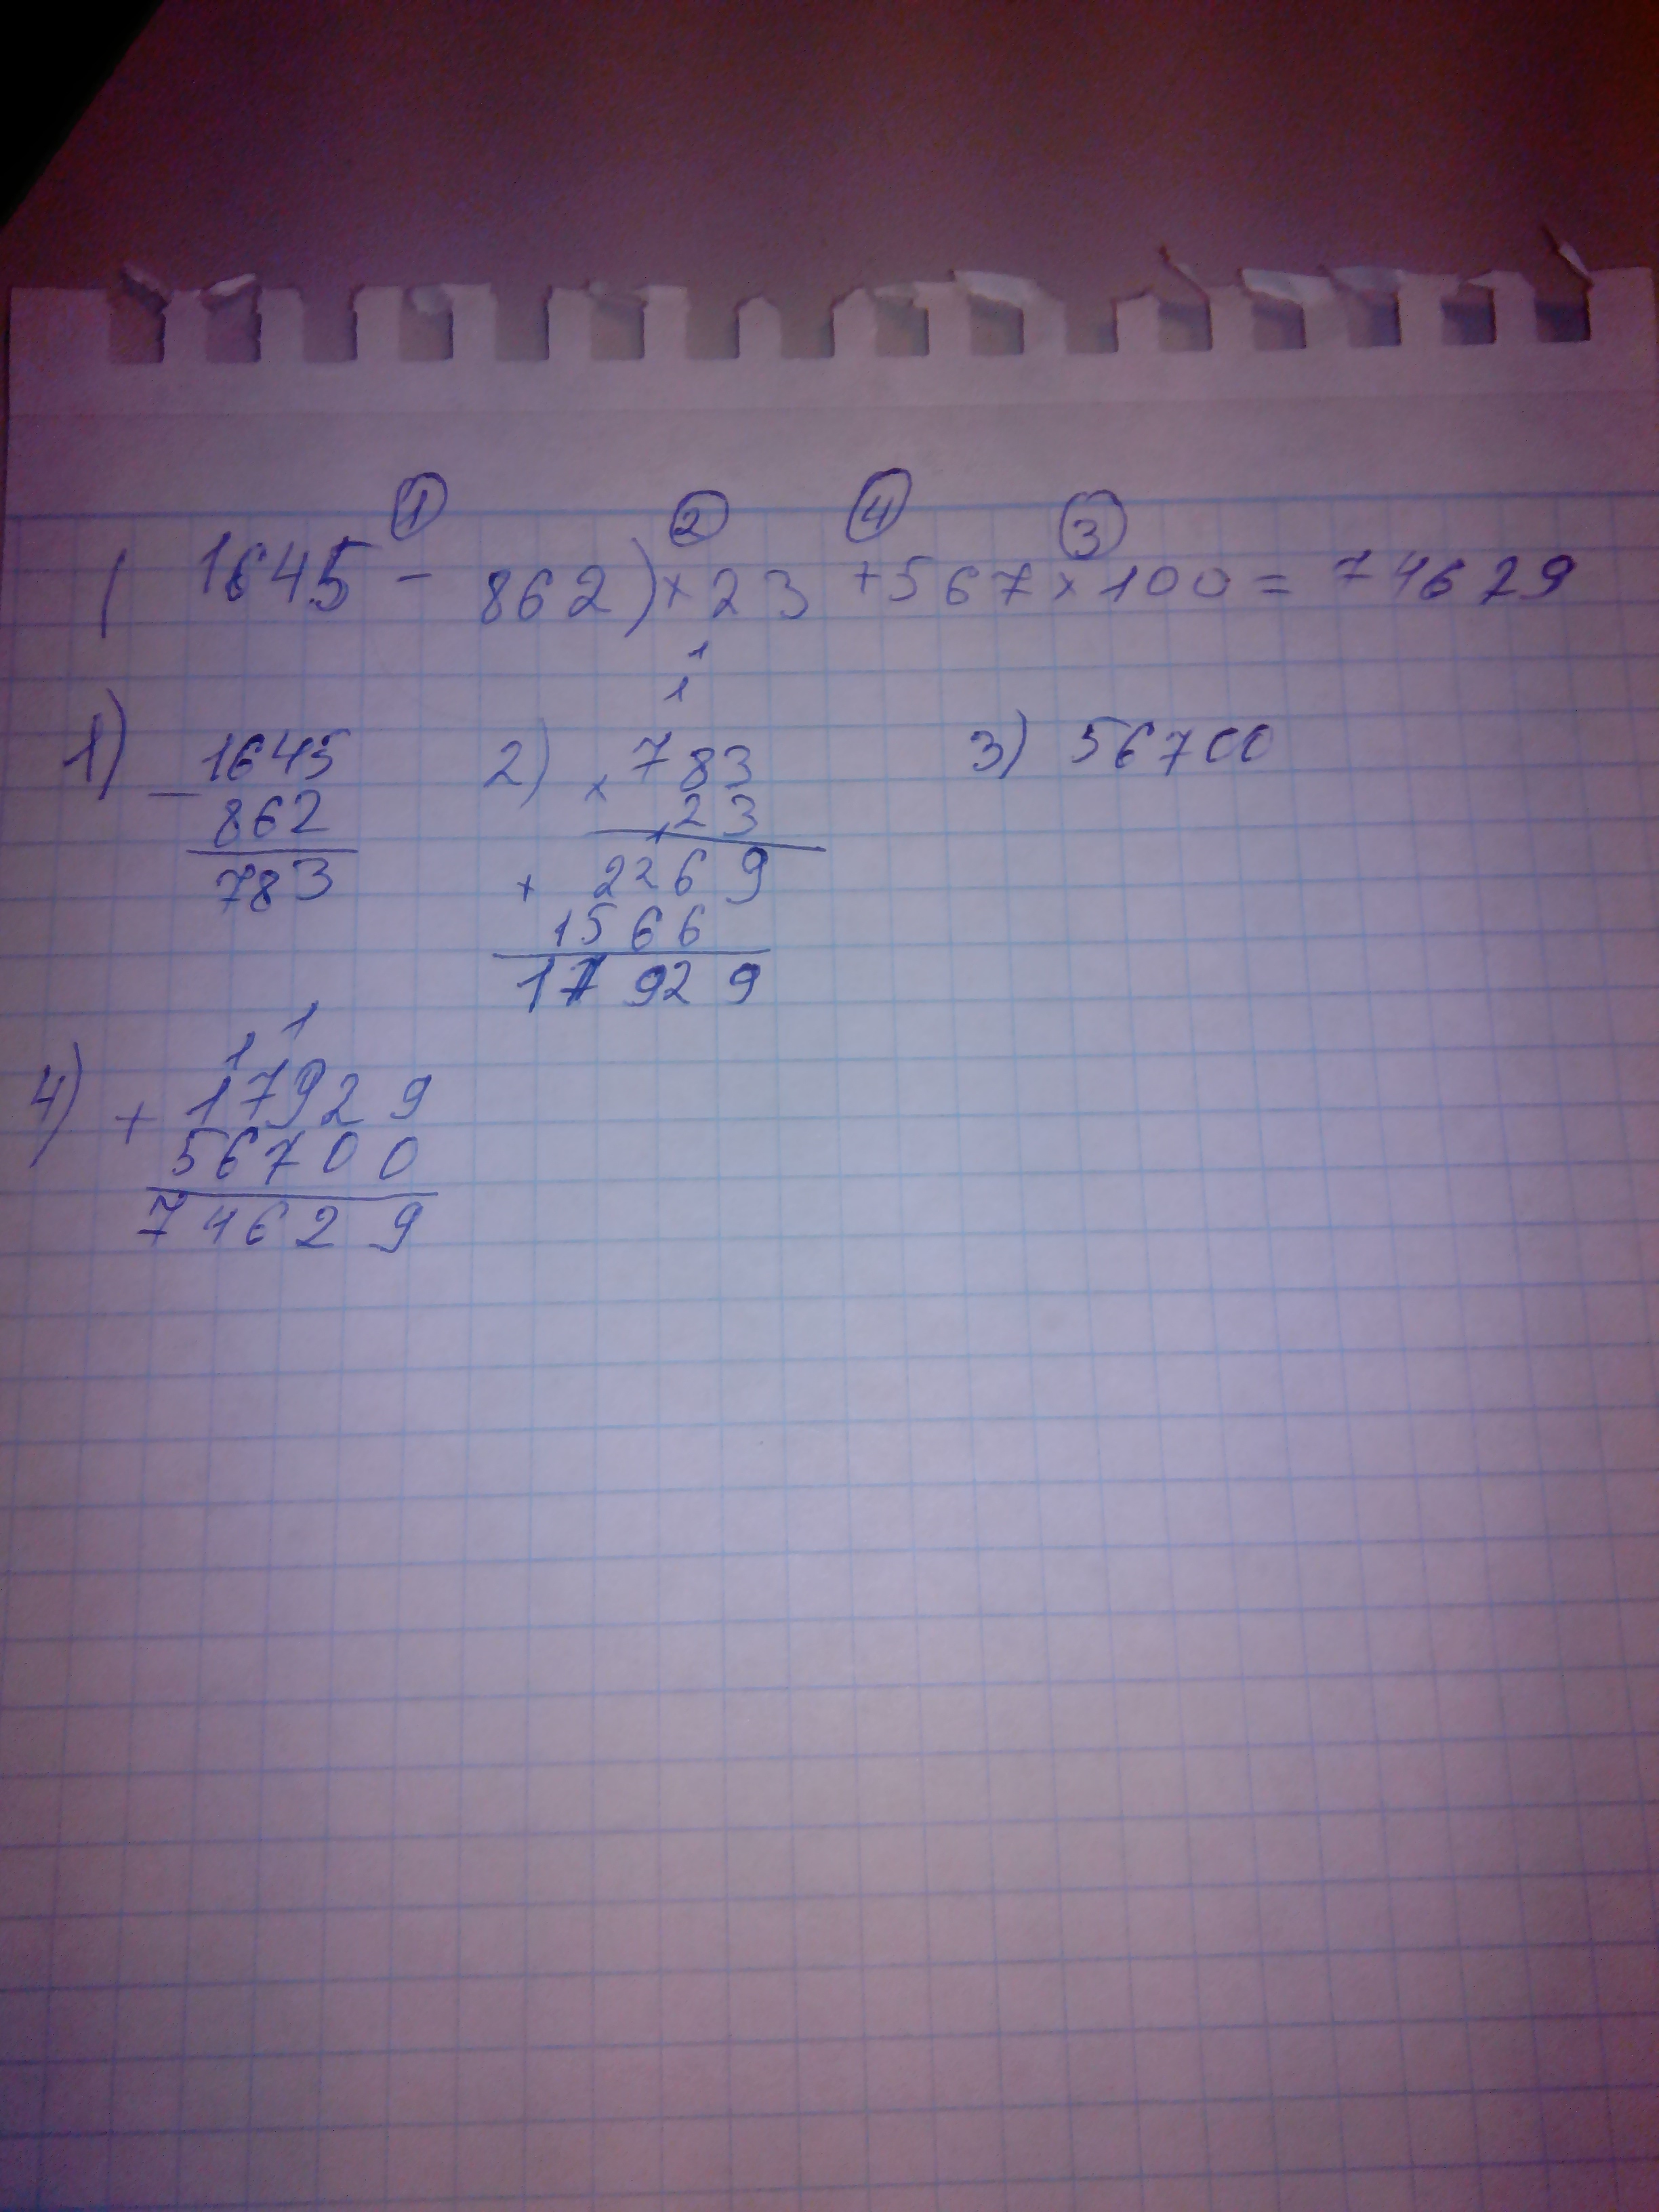 ① ② ④ ③
( 1645 - 862) × 23 + 567 × 100 = 74629
1
1
1) 1645 2) × 783 3) 56700
- 862 23
783 + 2269
1566
17929
1 1
4) + 17929
56700
74629